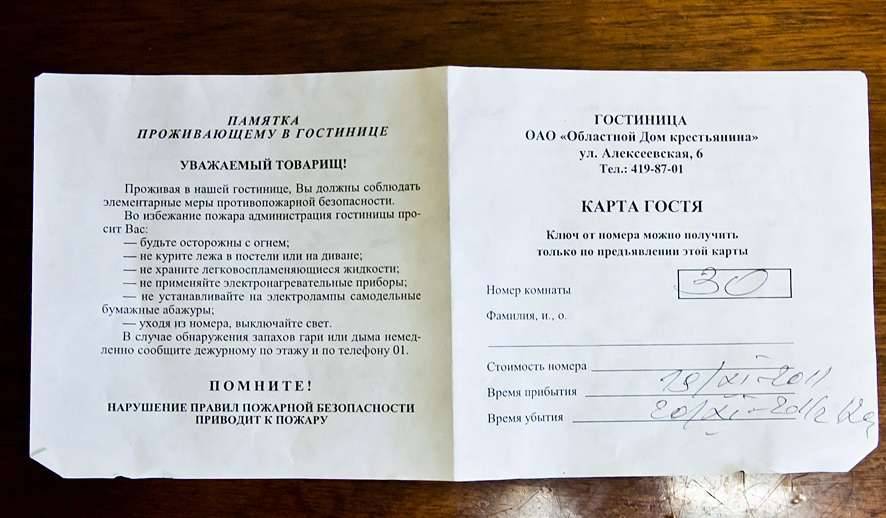 ПАМЯТКА
ПРОЖИВАЮЩЕМУ В ГОСТИНИЦЕ
УВАЖАЕМЫЙ ТОВАРИЩ!
Проживая в нашей гостинице, Вы должны соблюдать
элементарные меры противопожарной безопасности.
Во избежание пожара администрация гостиницы про-
сит Вас:
— будьте осторожны с огнем;
— не курите лежа в постели или на диване;
— не храните легковоспламеняющиеся жидкости;
— не применяйте электронагревательные приборы;
— не устанавливайте на электролампы самодельные
бумажные абажуры;
— уходя из номера, выключайте свет.
В случае обнаружения запахов гари или дыма немед-
ленно сообщите дежурному по этажу и по телефону 01.
ПОМНИТЕ!
НАРУШЕНИЕ ПРАВИЛ ПОЖАРНОЙ БЕЗОПАСНОСТИ
ПРИВОДИТ К ПОЖАРУ
ГОСТИНИЦА
ОАО «Областной Дом крестьянина»
ул. Алексеевская, 6
Тел.: 419-87-01
КАРТА ГОСТЯ
Ключ от номера можно получить
только по предъявлении этой карты
Номер комнаты 30
Фамилия, и., о.
Стоимость номера
Время прибытия 19/XI-2011
Время убытия 20/XI-2011